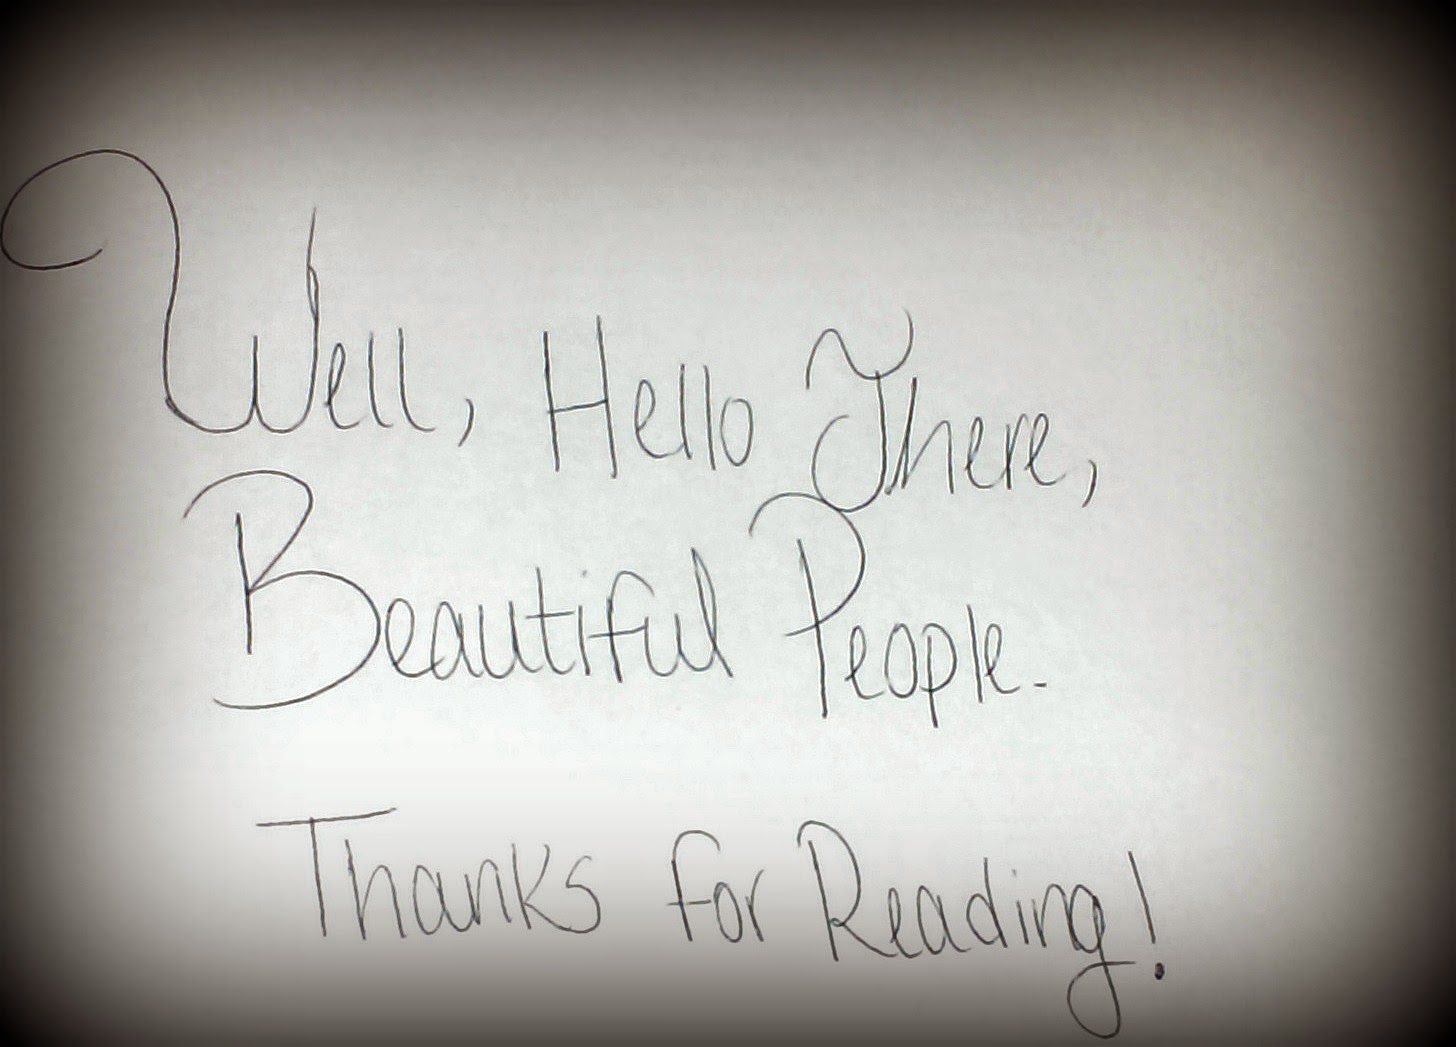 Well, Hello There,
Beautiful People.
Thanks for Reading!